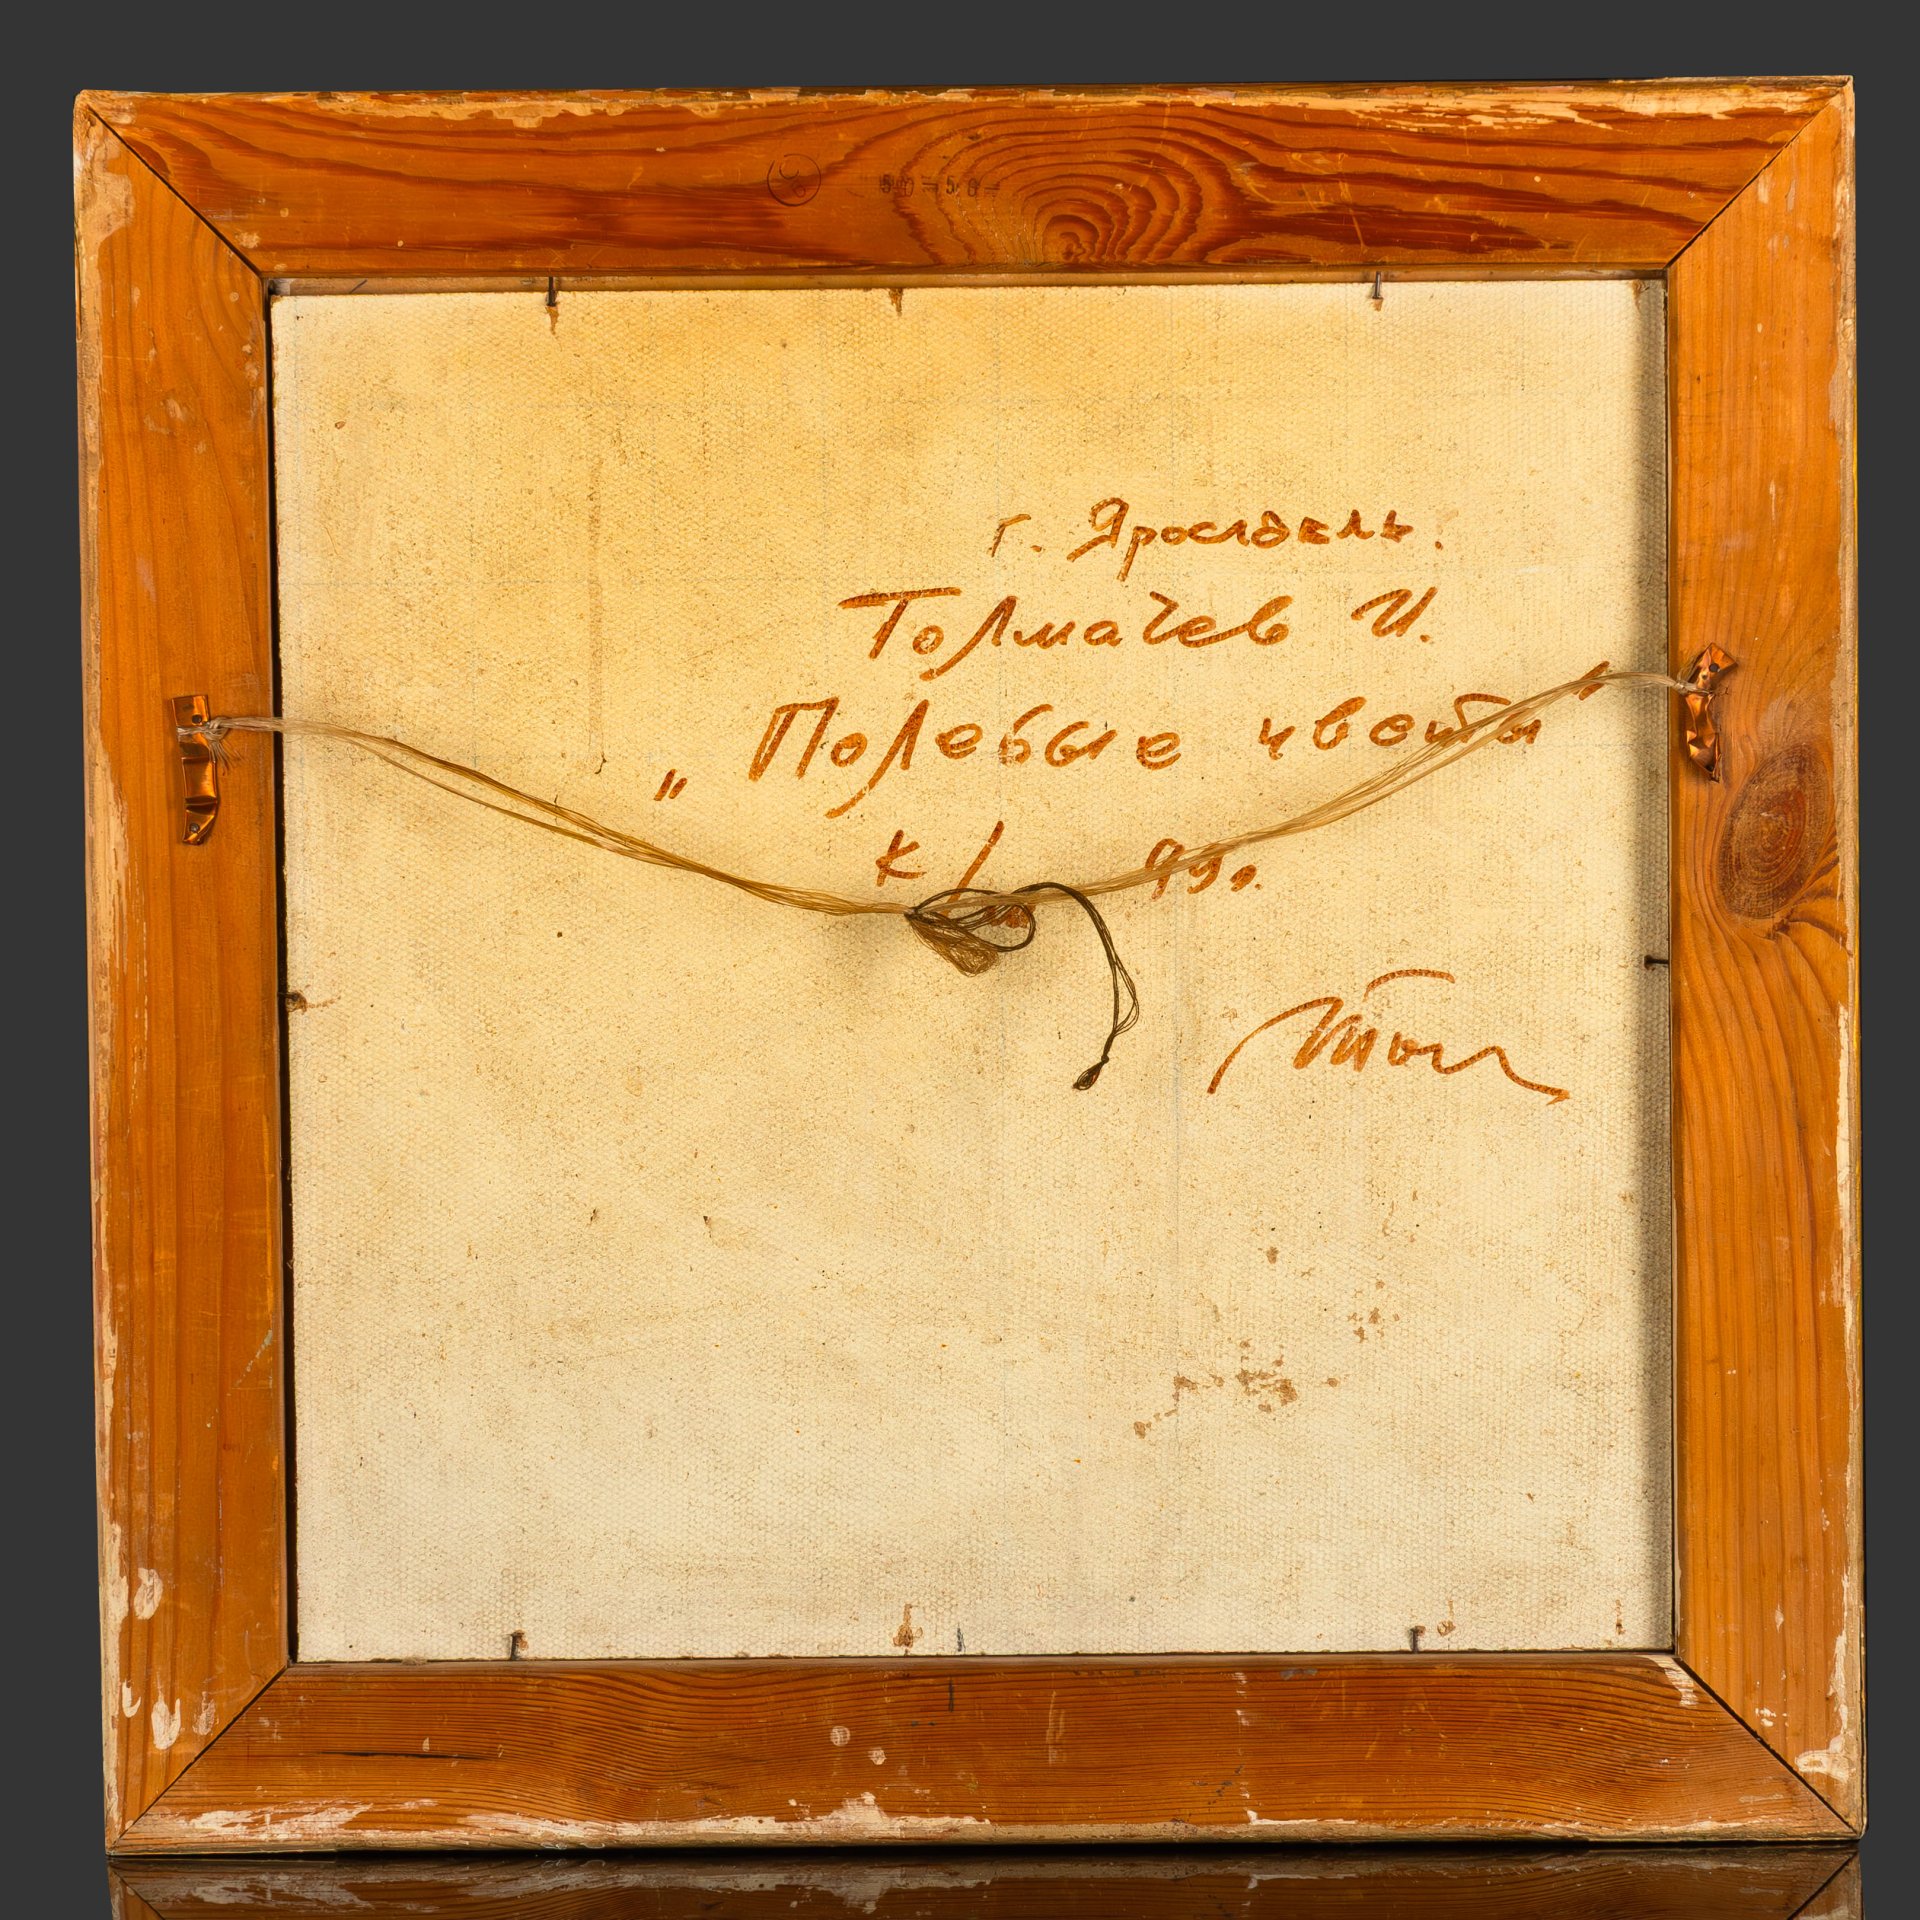 50 – 50 –
г. Ярославль.
Толмачев И.
„Полевые цветы"
к/м 99г.